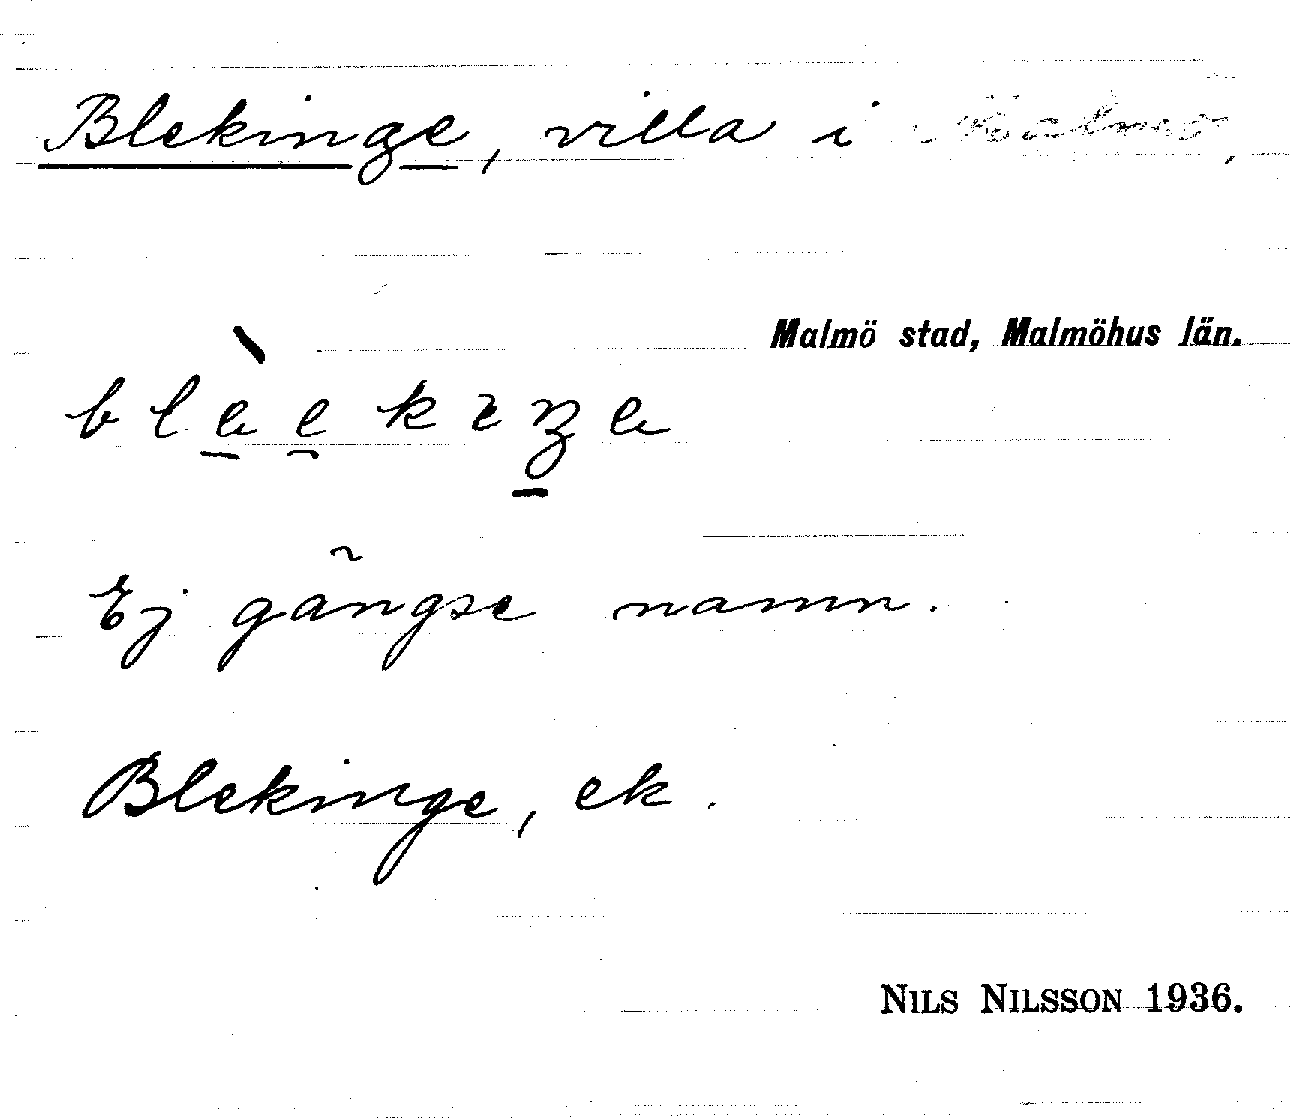 Blekinge, villa i Malmö,
Malmö stad, Malmöhus län.
Ej gängse namn.
Blekinge, ek.
NILS NILSSON 1936.